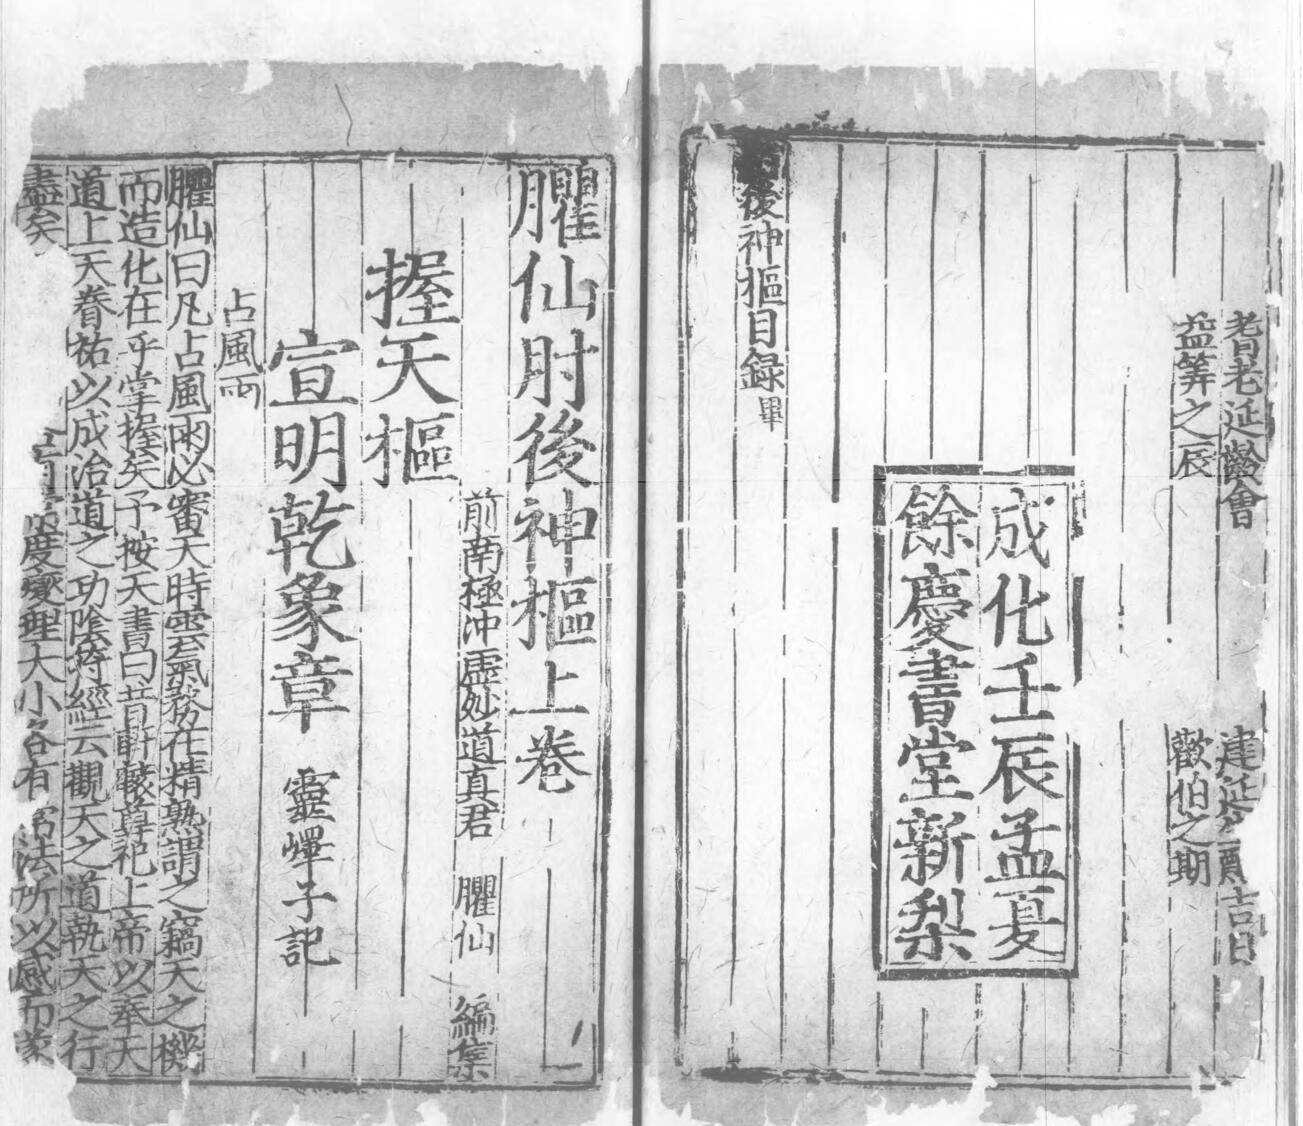 耆老延齡會
建延生
吉日
益筭之辰
歡伯之期
成化壬辰孟夏
餘慶書堂新梨
後神樞目録畢
臞仙肘後神樞上卷
前南極冲虚妙道真君 臞仙 編集
握天樞
宣明乾象章 靈㠢子記
占風雨
臞仙曰凡占風雨必審天時雲氣務在精熟謂之竊天之機
而造化在乎掌握矣予按天書曰昔軒轅尊祀上帝以奉天
道上天眷祐以成治道之功陰符經云觀天之道執天之行
盡矣
度燮理大小各有
法所以感而